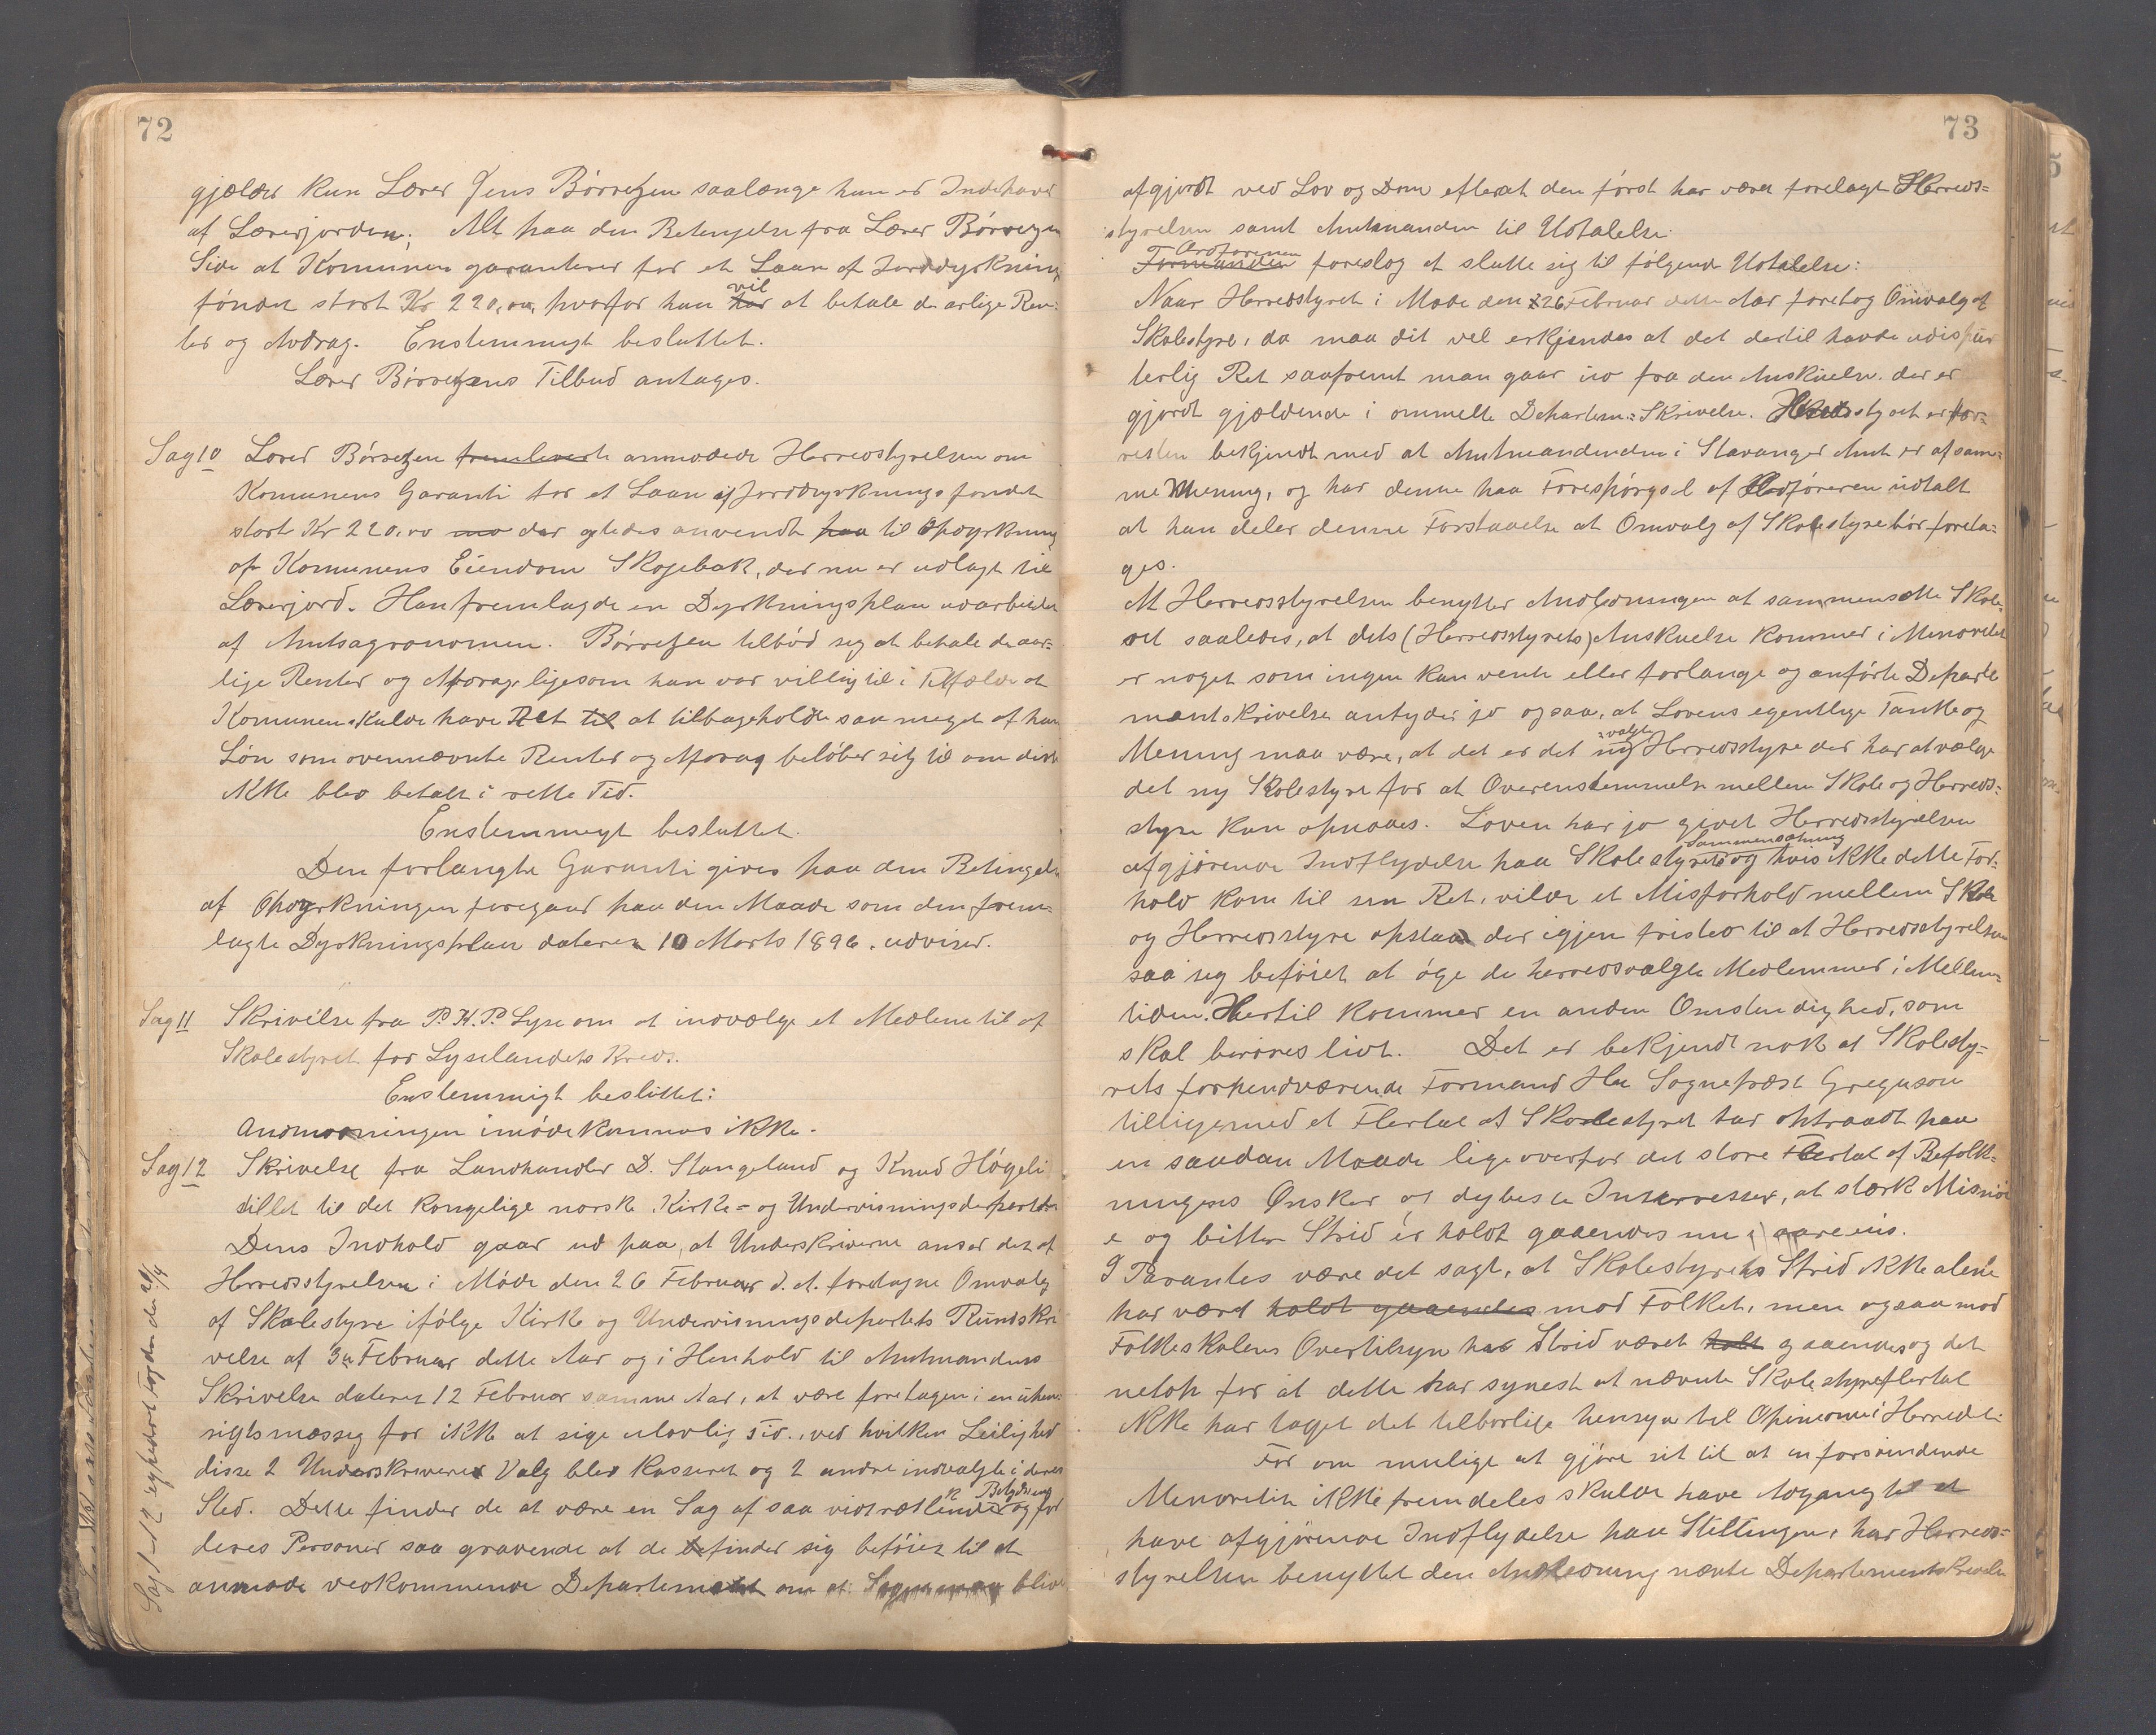 72
gjælder kun Lærer Jens Børretzen saalænge han er Indehaver
af Lærerjorden; Alt paa den Betingelse fra Lærer Børretzen
Side at Komunen garanterer for et Laan af Jorddyrkning
fondet stort Kr 220,00, hvorfor han vil at betale de arlige Ren-
ter og Avdrag. Enstemmigt besluttet.
Lærer Børretzens Tilbud antages.
Sag 10 Lærer Børretzen fremleverte anmodede Herredstyrelsen om
Komunens Garanti for et Laan af Jorddyrknings fondet
stort Kr 220,00 der agtedes anvendt paa til Opdyrkning
af Komunens Eiendom Skogebak, der nu er udlagt til
Lærerjord. Han fremlagde en Dyrkningsplan udarbeidet
af Amtsagronomen. Børretzen tilbød sig at betale de aar-
lige Renter og Afdrag ligesom han var villig til i Tilfælde at
Komunen skulde have Ret til at tilbageholde saa meget af hans
Løn som ovennævnte Renter og Afdrag beløber sig til om disse
ikke blev betalt i rette Tid.
Enstemmigt besluttet.
Den forlangte Garanti gives paa den Betingelse
af Opdyrkningen foregaar paa den Maade som den frem-
lagte Dyrkningsplan dateret 10 Marts 1896. udviser.
Sag 11 Skrivelse fra P. H. P. Lyse om at indvælge et Medlem til af
Skolestyret for Lyselandets Kreds.
Enstemmigt besluttet:
Andmodningen imødekommes ikke.
Sag 12 Skrivelse fra Landhandler D. Stangeland og Knud Høgeli
stillet til det kongelige norske Kirke- og Undervisningsdepartem
Dens Indhold gaar ud paa, at Underskriverne anser det af
Herredsstyrelsen i Møde den 26 Februar d. A. foretagne Omvalg
af Skolestyre ifølge Kirke og Undervisningsdepartets Rundskri
velse af 3die Februar dette Aar og i Henhold til Amtmandens
Skrivelse dateret 12 Februar samme Aar, at være foretagen i en uhen-
sigtsmæssig for ikke at sige ulovlig Tid., ved hvilken Leilighed
disse 2 Underskriveres Valg blev kasseret og 2 andre indvalgte i deres
Sted. Dette finder de at være en Sag af saa vidtrækkende Betydning og for
deres Personer saa gravende at de befinder sig beføiet til at
anmode vedkommende Departement om at Sagen maa blive
Sag 1-12 Togden 20/4
73
afgjordt ved Lov og Dom efterat den først har været forelagt Herreds-
styrelsen samt Amtmanden til Udtalelse.
Formanden Ordføreren foreslog at slutte sig til følgende Udtalelse:
Naar Herredstyret i Møde den 26 Februar dette Aar foretog Omvalg af
Skolestyre, da maa dit vel erkjendes at det dertil havde udispüt
terlig Ret saafremt man gaar ud fra den Anskuelse der er
gjordt gjældende i ommelte Departem.-Skrivelse. Herredsstyret er for-
resten bekjendt med at Amtmandenden i Stavanger Amt er af sam-
me Mening, og har denne paa Forespørgsel af Ordføreren udtalt
at han deler denne Forstaaelse at Omvalg af Skolestyre bør foreta-
ges.
At Herredsstyrelsen benytter Anledningen at sammensætte Skole-
ret saaledes, at dets (Herredsstyrets) Anskuelse kommer i Menoritet
er noget som ingen kan vente eller forlange og anførte Departe
mentskrivelse antyder jo ogsaa, at Lovens egentlige Tanke og
Mening maa være, at det er det ny valgte Herredsstyre der har at vælge
det ny Skolestyre for at Overenstemmelse mellem Skole og Herreds-
styre kan opnaaes. Loven har jo givet Herredsstyrelsen
afgjørende Indflydelse paa Skolestyrets Sammensætning og hvis ikke dette For-
hold kom til sin Ret, vilde et Misforhold mellem Skole
og Herredsstyre opstaa der igjen fristed til at Herredsstyrelsen
saa sig beføiet at øge de herredsvalgte Medlemmer i Mellem-
tiden. Hertil kommer en anden Omstendighed, som
skal berøres lidt. Det er bekjendt nok at Skolesty-
rets forhenværende Formand Hr Sogneprest Gregusson
tilligemed et Flertal af Skolestyret har optraadt paa
en saadan Maade lige overfor det store Flertal af Befolk-
ningens Ønsker og dybeste Interresser, at stærk Misnøi
e og bitter Strid er holdt gaaendes nu i aarevis.
I Parantes være det sagt, at Skolestyrets Strid ikke alene
har været holdt gaaendes mod Folket, men ogsaa mod
Folkeskolens Overtilsyn har Strid været holdt gaaendes og det
netop for at dette har synest at nævnte Skolestyreflertal
ikke har taget det tilbørlige hensyn til Opinionen i Herredet.
For om mulige at gjøre sit til at en forsvindende
Menoritet ikke fremdeles skulde have Adgang til at
have afgjørende Indflydelse paa Stillingen, har Herreds-
styrelsen benyttet den Anledning nævnte Departementskrivelse